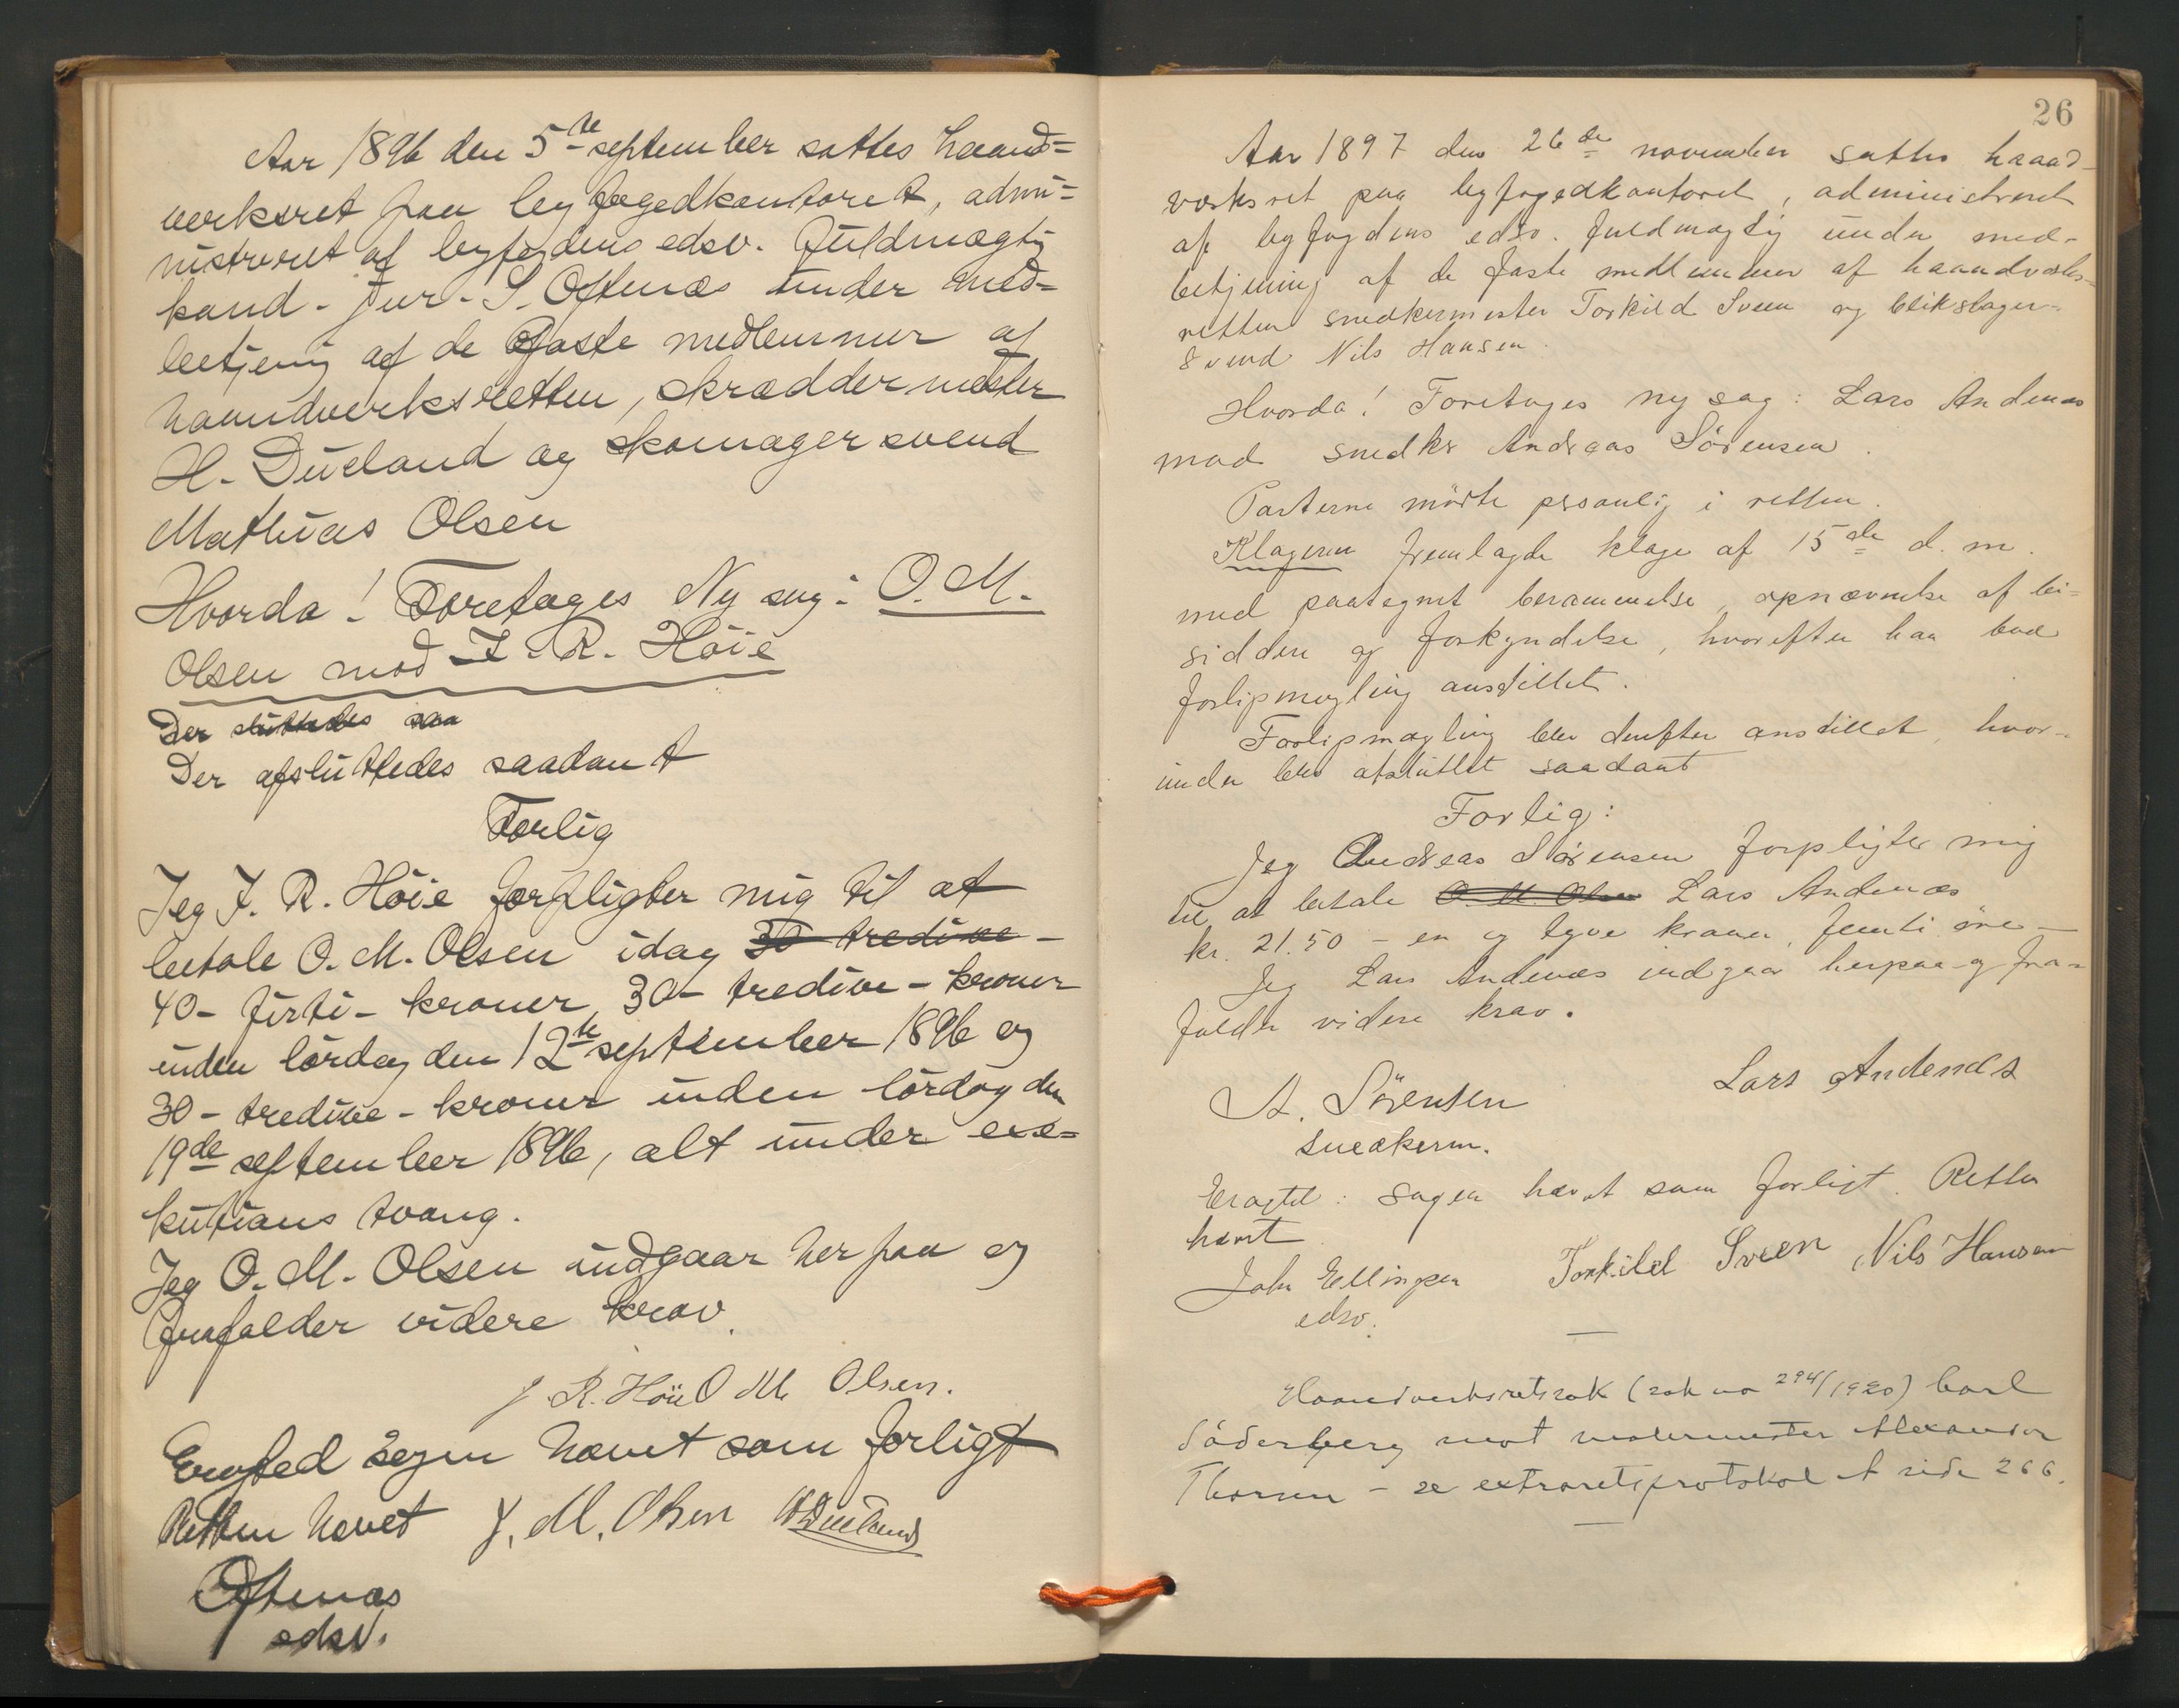 Aar 1896 den 5te september sattes haand=
verksret paa byfogedkontoret, admi=
nistreret af byfogdens edsv. Fuldmægtig
kand. jur. S. Oftenæs under med=
betjening af de faste medlemmer af
haandverksretten, skrædder mester
H. Dueland og skomager svend
Mathias Olsen
Hvorda! Foretages Ny sag: O. M.
Olsen mod I. R. Höie
Der sluttedes saa
Der afsluttedes saadant
Forlig
Jeg I. R. Höie forpligter mig til at
betale O. M. Olsen idag 30 tredive -
40 - firti - kroner, 30 - tredive - kroner
inden lördag den 12te september 1896 og
30 - tredive - kroner inden lördag den
19de september 1896, alt under exe=
kutions tvang.
Jeg O. M. Olsen indgaar her paa og
frafalder videre krav.
J. R. Höie O M Olsen.
Eragted Sagen hævet som forligt
Retten hævet J. M. Olsen HDueland
Oftenæs
edsv.
26
Aar 1897 den 26de november sattes haand-
verksret paa byfogedkontoret, administreret
af byfogdens edsv. fuldmægtig under med-
betjening af de faste medlemmer af haandverks-
retten snedkermester Torkild Sveen og blikslager-
svend Nils Hansen.
Hvorda! Foretages ny sag: Lars Andenæs
mod snedker Andreas Sörensen.
Parterne mödte personlig i retten.
Klageren fremlagde klage af 15de d. m.
med paategnet berammelse, opnævnelse af bi-
siddere og forkyndelse, hvorefter han bad
forligsmægling anstillet.
Forligsmægling blev derefter anstillet, hvor-
under blev afsluttet saadant
Forlig:
Jeg Andreas Sörensen forpligter mig
til at betale O. M. Olsen Lars Andenæs
kr. 21.50 - en og tyve kroner, femti öre -
Jeg Lars Andenæs indgaar herpaa og fra-
falder videre krav.
Lars Andenæs
A. Sörensen
snedkerm.
Eragted: Sagen hævet som forligt. Retten
hævet
John Ellingsen Torkild Sveen Nils Hansen
edsv.
Haandverksretssak (sak no 294/1920) Carl
Söderberg mot malermester Alexander
Thorsen - se extraretsprotokol A side 266.